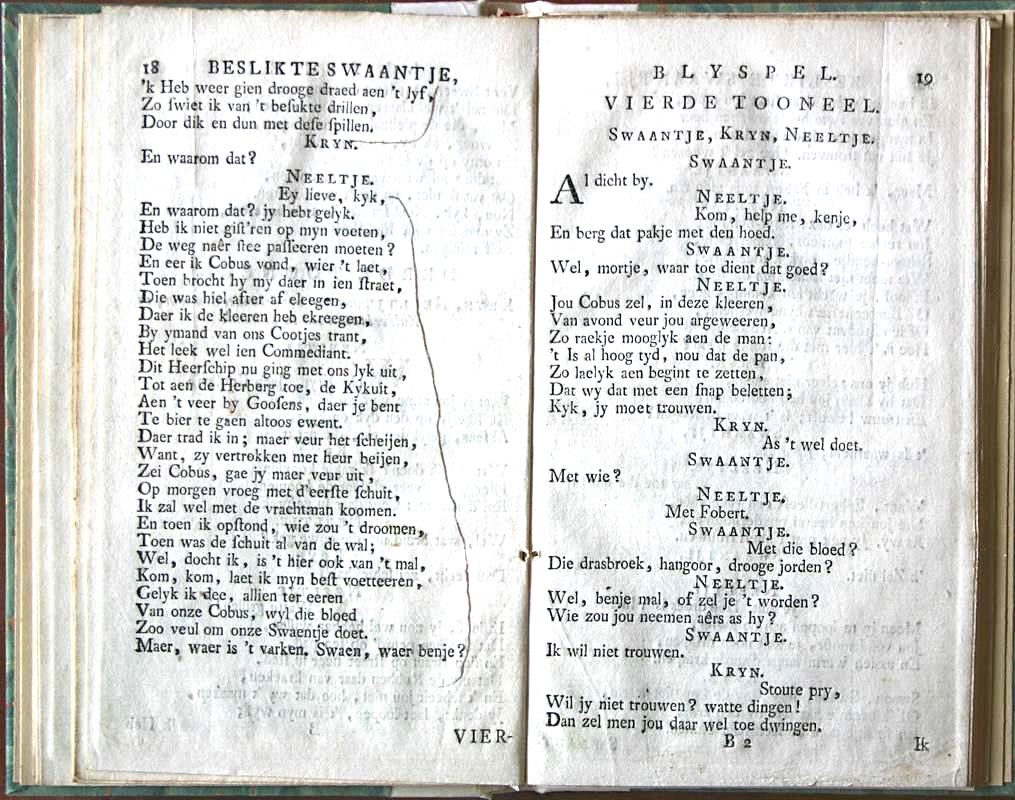 18 BESLIKTE SWAANTJE,
'k Heb weer gien drooge draed aen 't lyf,
Zo ſwiet ik van 't beſukte drillen,
Door dik en dun met deſe ſpillen.
KRYN.
En waarom dat?
NEELTJE.
Ey lieve, kyk,
En waarom dat? jy hebt gelyk.
Heb ik niet giſt'ren op myn voeten,
De weg naêr ſtee paſſeeren moeten?
En eer ik Cobus vond, wier 't laet,
Toen brocht hy my daer in ien ſtraet,
Die was hiel after af eleegen,
Daer ik de kleeren heb ekreegen,
By ymand van ons Cootjes trant,
Het leek wel ien Commediant.
Dit Heerſchip nu ging met ons lyk uit,
Tot aen de Herberg toe, de Kykuit,
Aen 't veer by Gooſens, daer je bent
Te bier te gaen altoos ewent.
Daer trad ik in; maer veur het ſcheijen,
Want, zy vertrokken met heur beijen,
Zei Cobus, gae jy maer veur uit,
Op morgen vroeg met d'eerſte ſchuit,
Ik zal wel met de vrachtman koomen.
En toen ik opſtond, wie zou 't droomen,
Toen was de ſchuit al van de wal;
Wel, docht ik, is 't hier ook van 't mal,
Kom, kom, laet ik myn beſt voetteeren,
Gelyk ik dee, allien ter eeren
Van onze Cobus, wyl die bloed
Zoo veul om onze Swaentje doet.
Maer, waer is 't varken. Swaen, waer benje?
VIER-
BLYSPEL. 19
VIERDE TOONEEL.
SWAANTJE, KRYN, NEELTJE.
SWAANTJE.
Al dicht by.
NEELTJE.
Kom, help me, kenje,
En berg dat pakje met den hoed.
SWAANTJE.
Wel, mortje, waar toe dient dat goed?
NEELTJE.
Jou Cobus zel, in deze kleeren,
Van avond veur jou argeweeren,
Zo raekje mooglyk aen de man:
't Is al hoog tyd, nou dat de pan,
Zo laelyk aen begint te zetten,
Dat wy dat met een ſnap beletten;
Kyk, jy moet trouwen.
KRYN.
As 't wel doet.
SWAANTJE.
Met wie?
NEELTJE.
Met Fobert.
SWAANTJE.
Met die bloed?
Die drasbroek, hangoor, drooge jorden?
NEELTJE.
Wel, benje mal, of zel je 't worden?
Wie zou jou neemen aêrs as hy?
SWAANTJE.
Ik wil niet trouwen.
KRYN.
Stoute pry,
Wil jy niet trouwen? watte dingen!
Dan zel men jou daar wel toe dwingen.
B 2 Ik